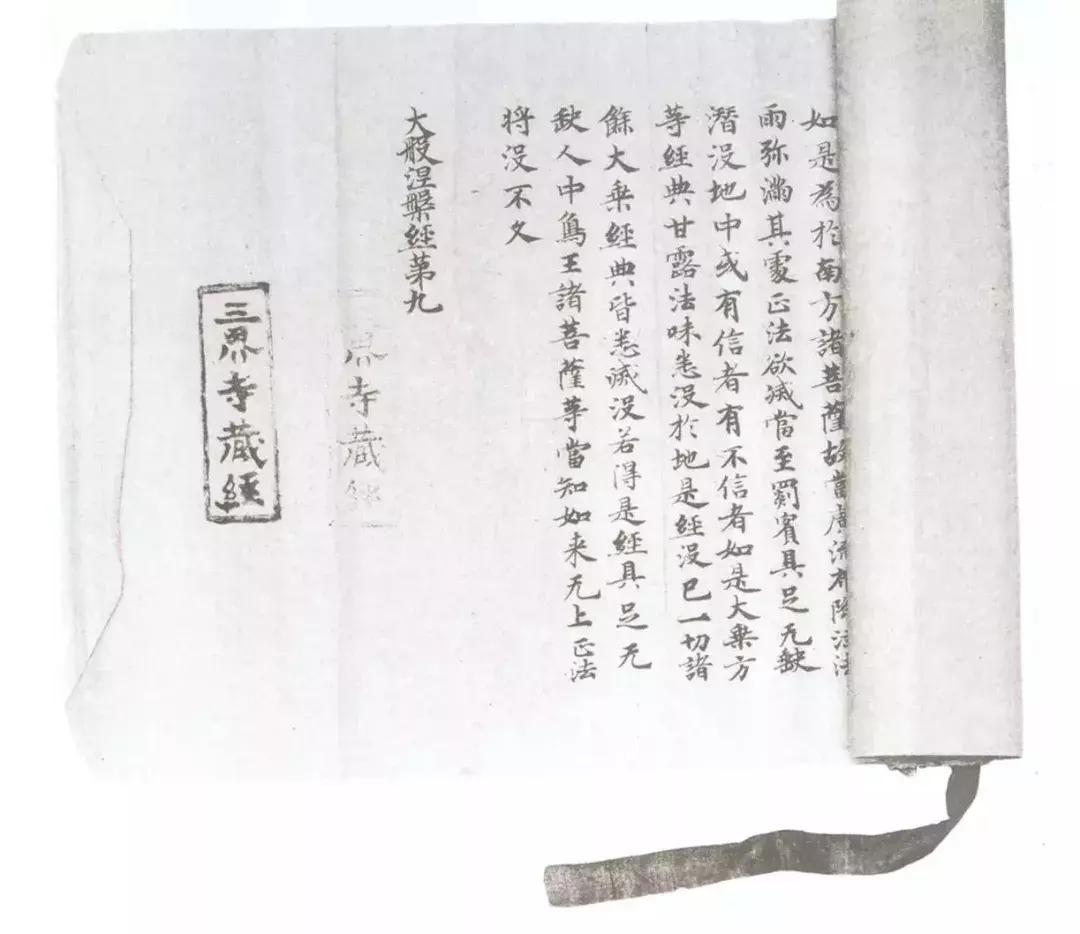 如是為於南方諸菩薩故當廣流布降注法
雨弥滿其處正法欲滅當至罽賓具足无缺
潛沒地中或有信者有不信者如是大乘方
等經典甘露法味悉沒於地是經沒已一切諸
餘大乘經典皆悉滅沒若得是經具足无
缺人中象王諸菩薩等當知如来无上正法
将沒不久
大般涅槃經第九
界寺藏經
三界寺藏經